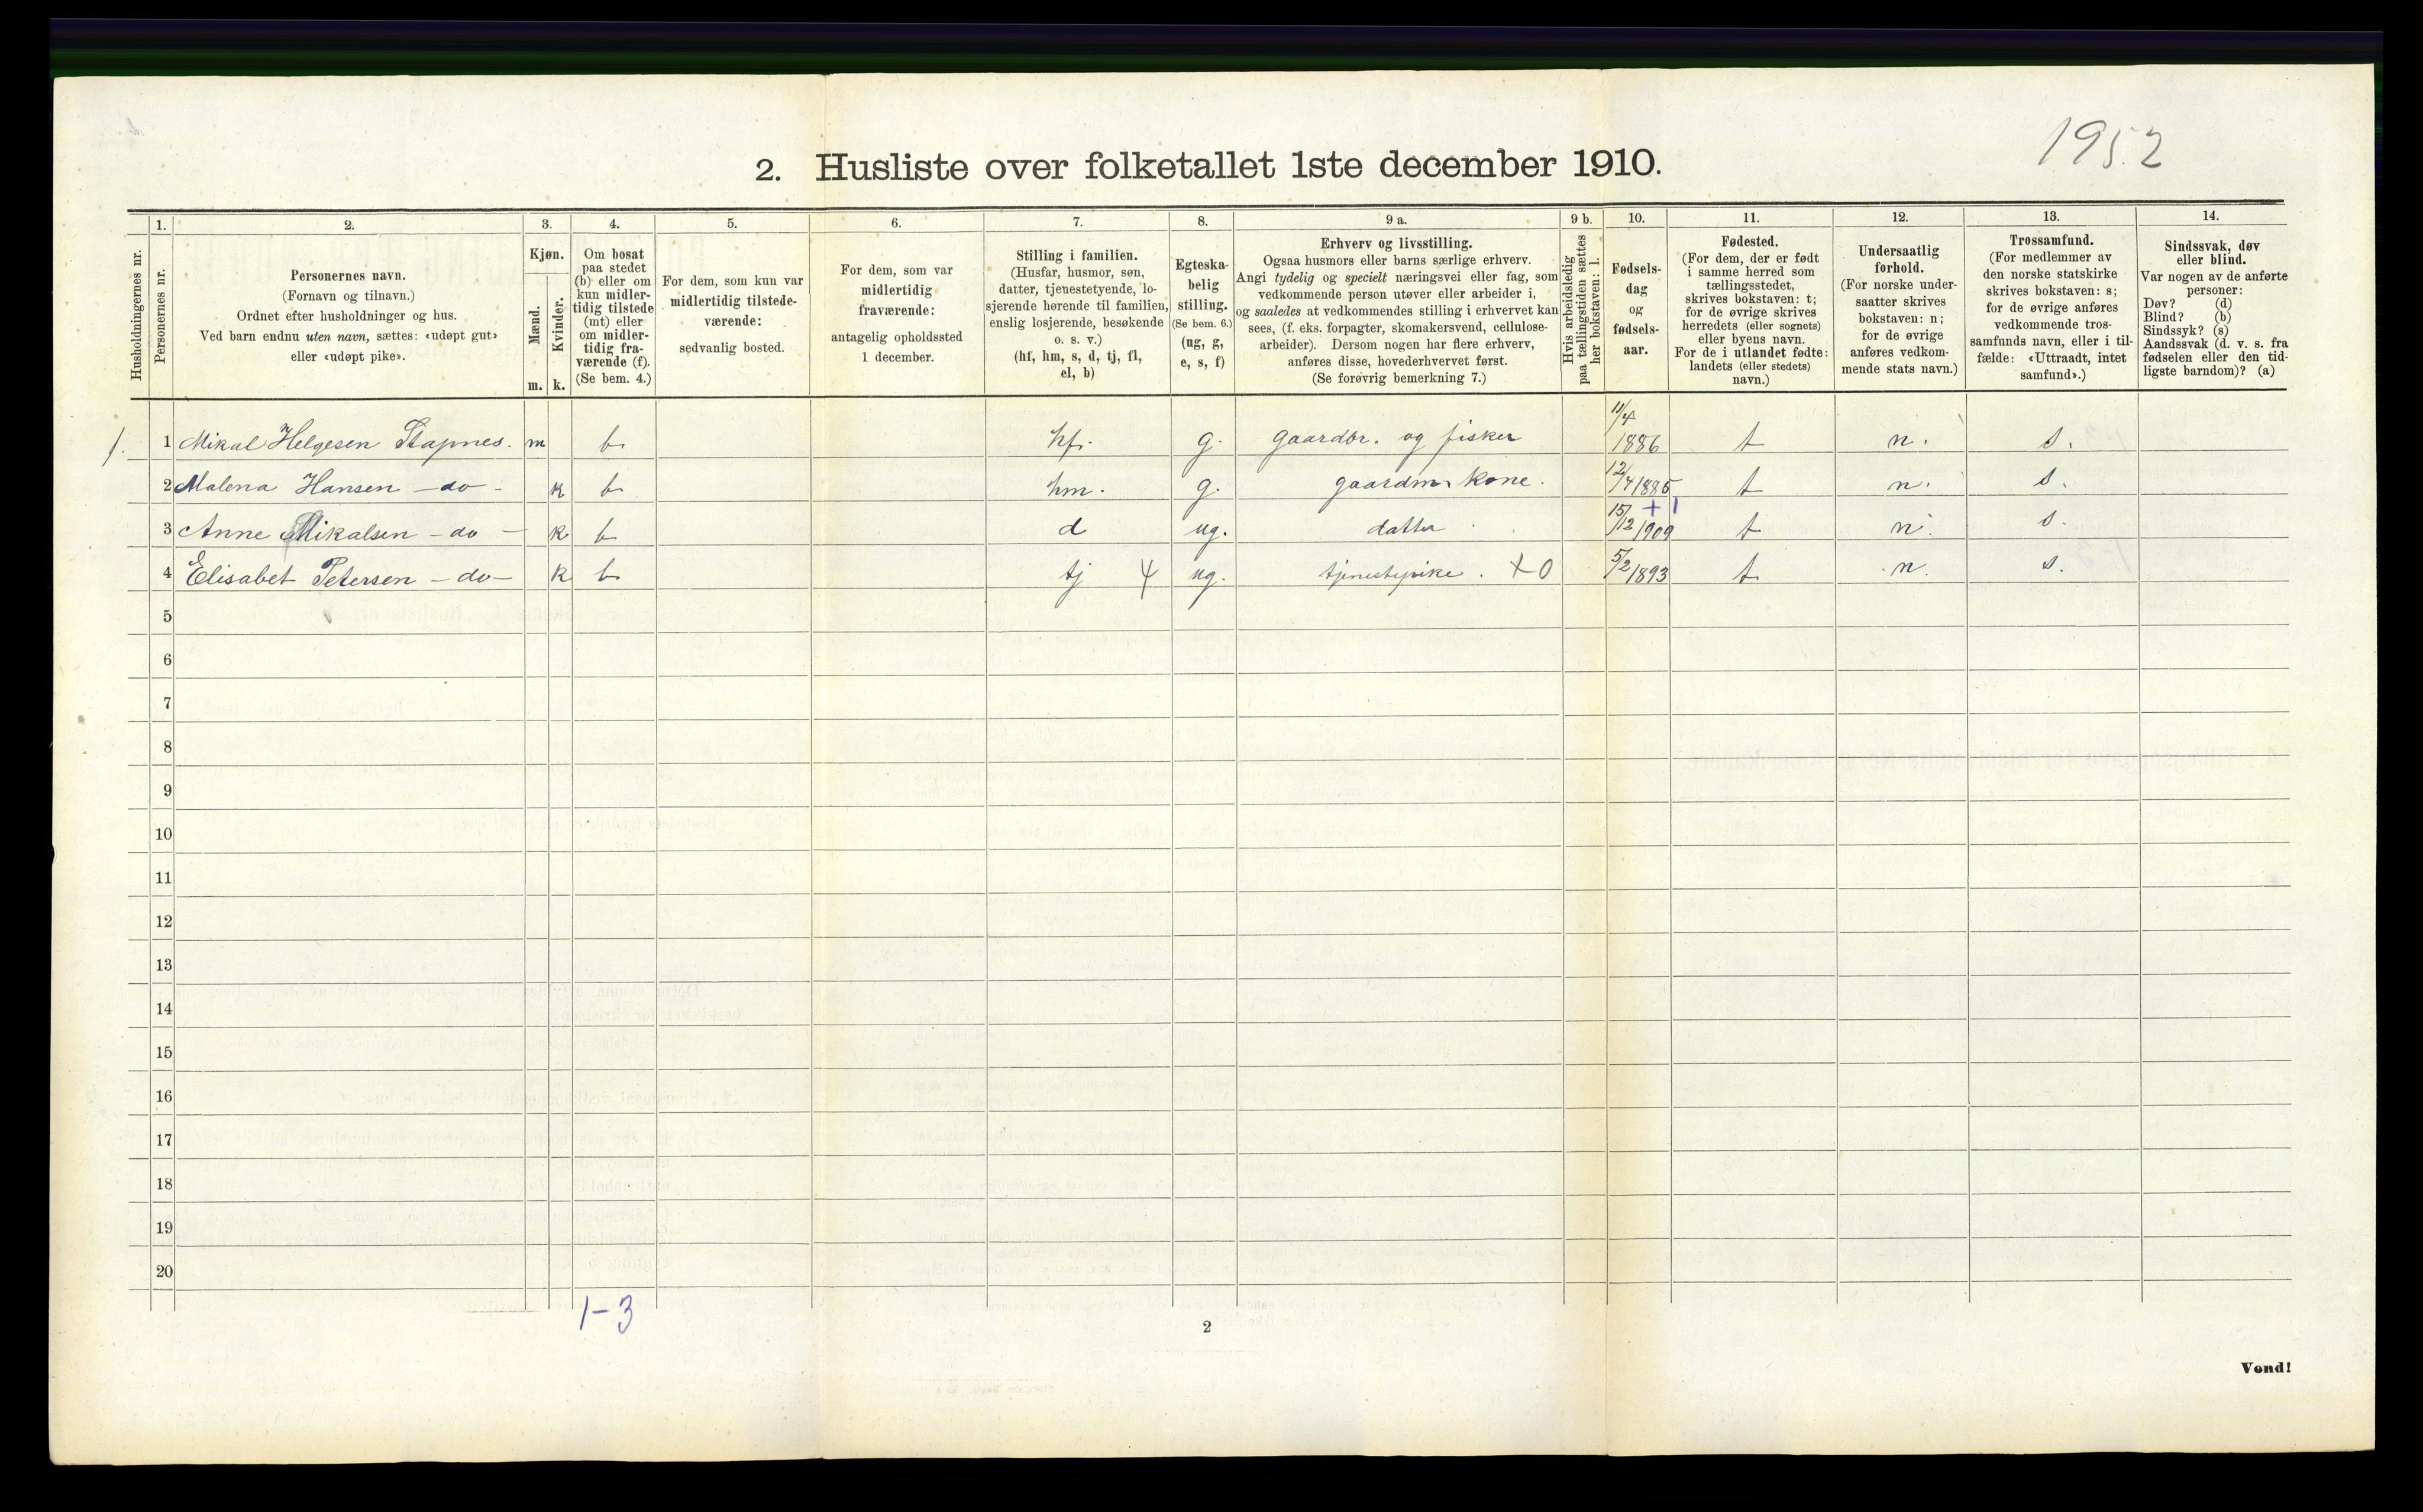 1952
2. Husliste over folketallet 1ste december 1910.
1. 2. 3. 4. 5. 6. 7. 8. 9 a. 9 b. 10. 11. 12. 13. 14.
Husholdningernes nr.
Personernes nr.
Personernes navn.
(Fornavn og tilnavn.)
Ordnet efter husholdninger og hus.
Ved barn endnu uten navn, sættes: «udøpt gut»
eller «udøpt pike».
Kjøn.
Mænd.
Kvinder.
m. k.
Om bosat
paa stedet
(b) eller om
kun midler-
tidig tilstede
(mt) eller
om midler-
tidig fra-
værende (f).
(Se bem. 4.)
For dem, som kun var
midlertidig tilstede-
værende:
sedvanlig bosted.
For dem, som var
midlertidig
fraværende:
antagelig opholdssted
1 december.
Stilling i familien.
(Husfar, husmor, søn,
datter, tjenestetyende, lo-
sjerende hørende til familien,
enslig losjerende, besøkende
o. s. v.)
(hf, hm, s, d, tj, fl,
el, b)
Egteska-
belig
stilling.
(Se bem. 6.)
(ug, g,
e, s, f)
Erhverv og livsstilling.
Ogsaa husmors eller barns særlige erhverv.
Angi tydelig og specielt næringsvei eller fag, som
vedkommende person utøver eller arbeider i,
og saaledes at vedkommendes stilling i erhvervet kan
sees, (f. eks. forpagter, skomakersvend, cellulose-
arbeider). Dersom nogen har flere erhverv,
anføres disse, hovederhvervet først.
(Se forøvrig bemerkning 7.)
Hvis arbeidsledig
paa tællingstiden sættes
her bokstaven: l.
Fødsels-
dag
og
fødsels-
aar.
Fødested.
(For dem, der er født
i samme herred som
tællingsstedet,
skrives bokstaven: t;
for de øvrige skrives
herredets (eller sognets)
eller byens navn.
For de i utlandet fødte:
landets (eller stedets)
navn.)
Undersaatlig
forhold.
(For norske under-
saatter skrives
bokstaven: n;
for de øvrige
anføres vedkom-
mende stats navn.)
Trossamfund.
(For medlemmer av
den norske statskirke
skrives bokstaven: s;
for de øvrige anføres
vedkommende tros-
samfunds navn, eller i til-
fælde: «Uttraadt, intet
samfund».)
Sindssvak, døv
eller blind.
Var nogen av de anførte
personer:
Døv? (d)
Blind? (b)
Sindssyk? (s)
Aandssvak (d. v. s. fra
fødselen eller den tid-
ligste barndom)? (a)
1. 1 Mikal Helgesen Stapnes. m b hf. g. gaardbr. og fisker 11/4 1886 t n. s.
2 Malena Hansen - do - k b hm. g. gaardm. kone. 12/4 1885 t n. s.
3 Anne Mikalsen - do - k b d ug. datter 15/12 1909 + 1 t n. s.
4 Elisabet Petersen - do - k b tj 4 ug. tjenestepike. + 0 5/2 1893 t. n. s.
5
6
7
8
9
10
11
12
13
14
15
16
17
18
19
20
1-3
2
Vend!